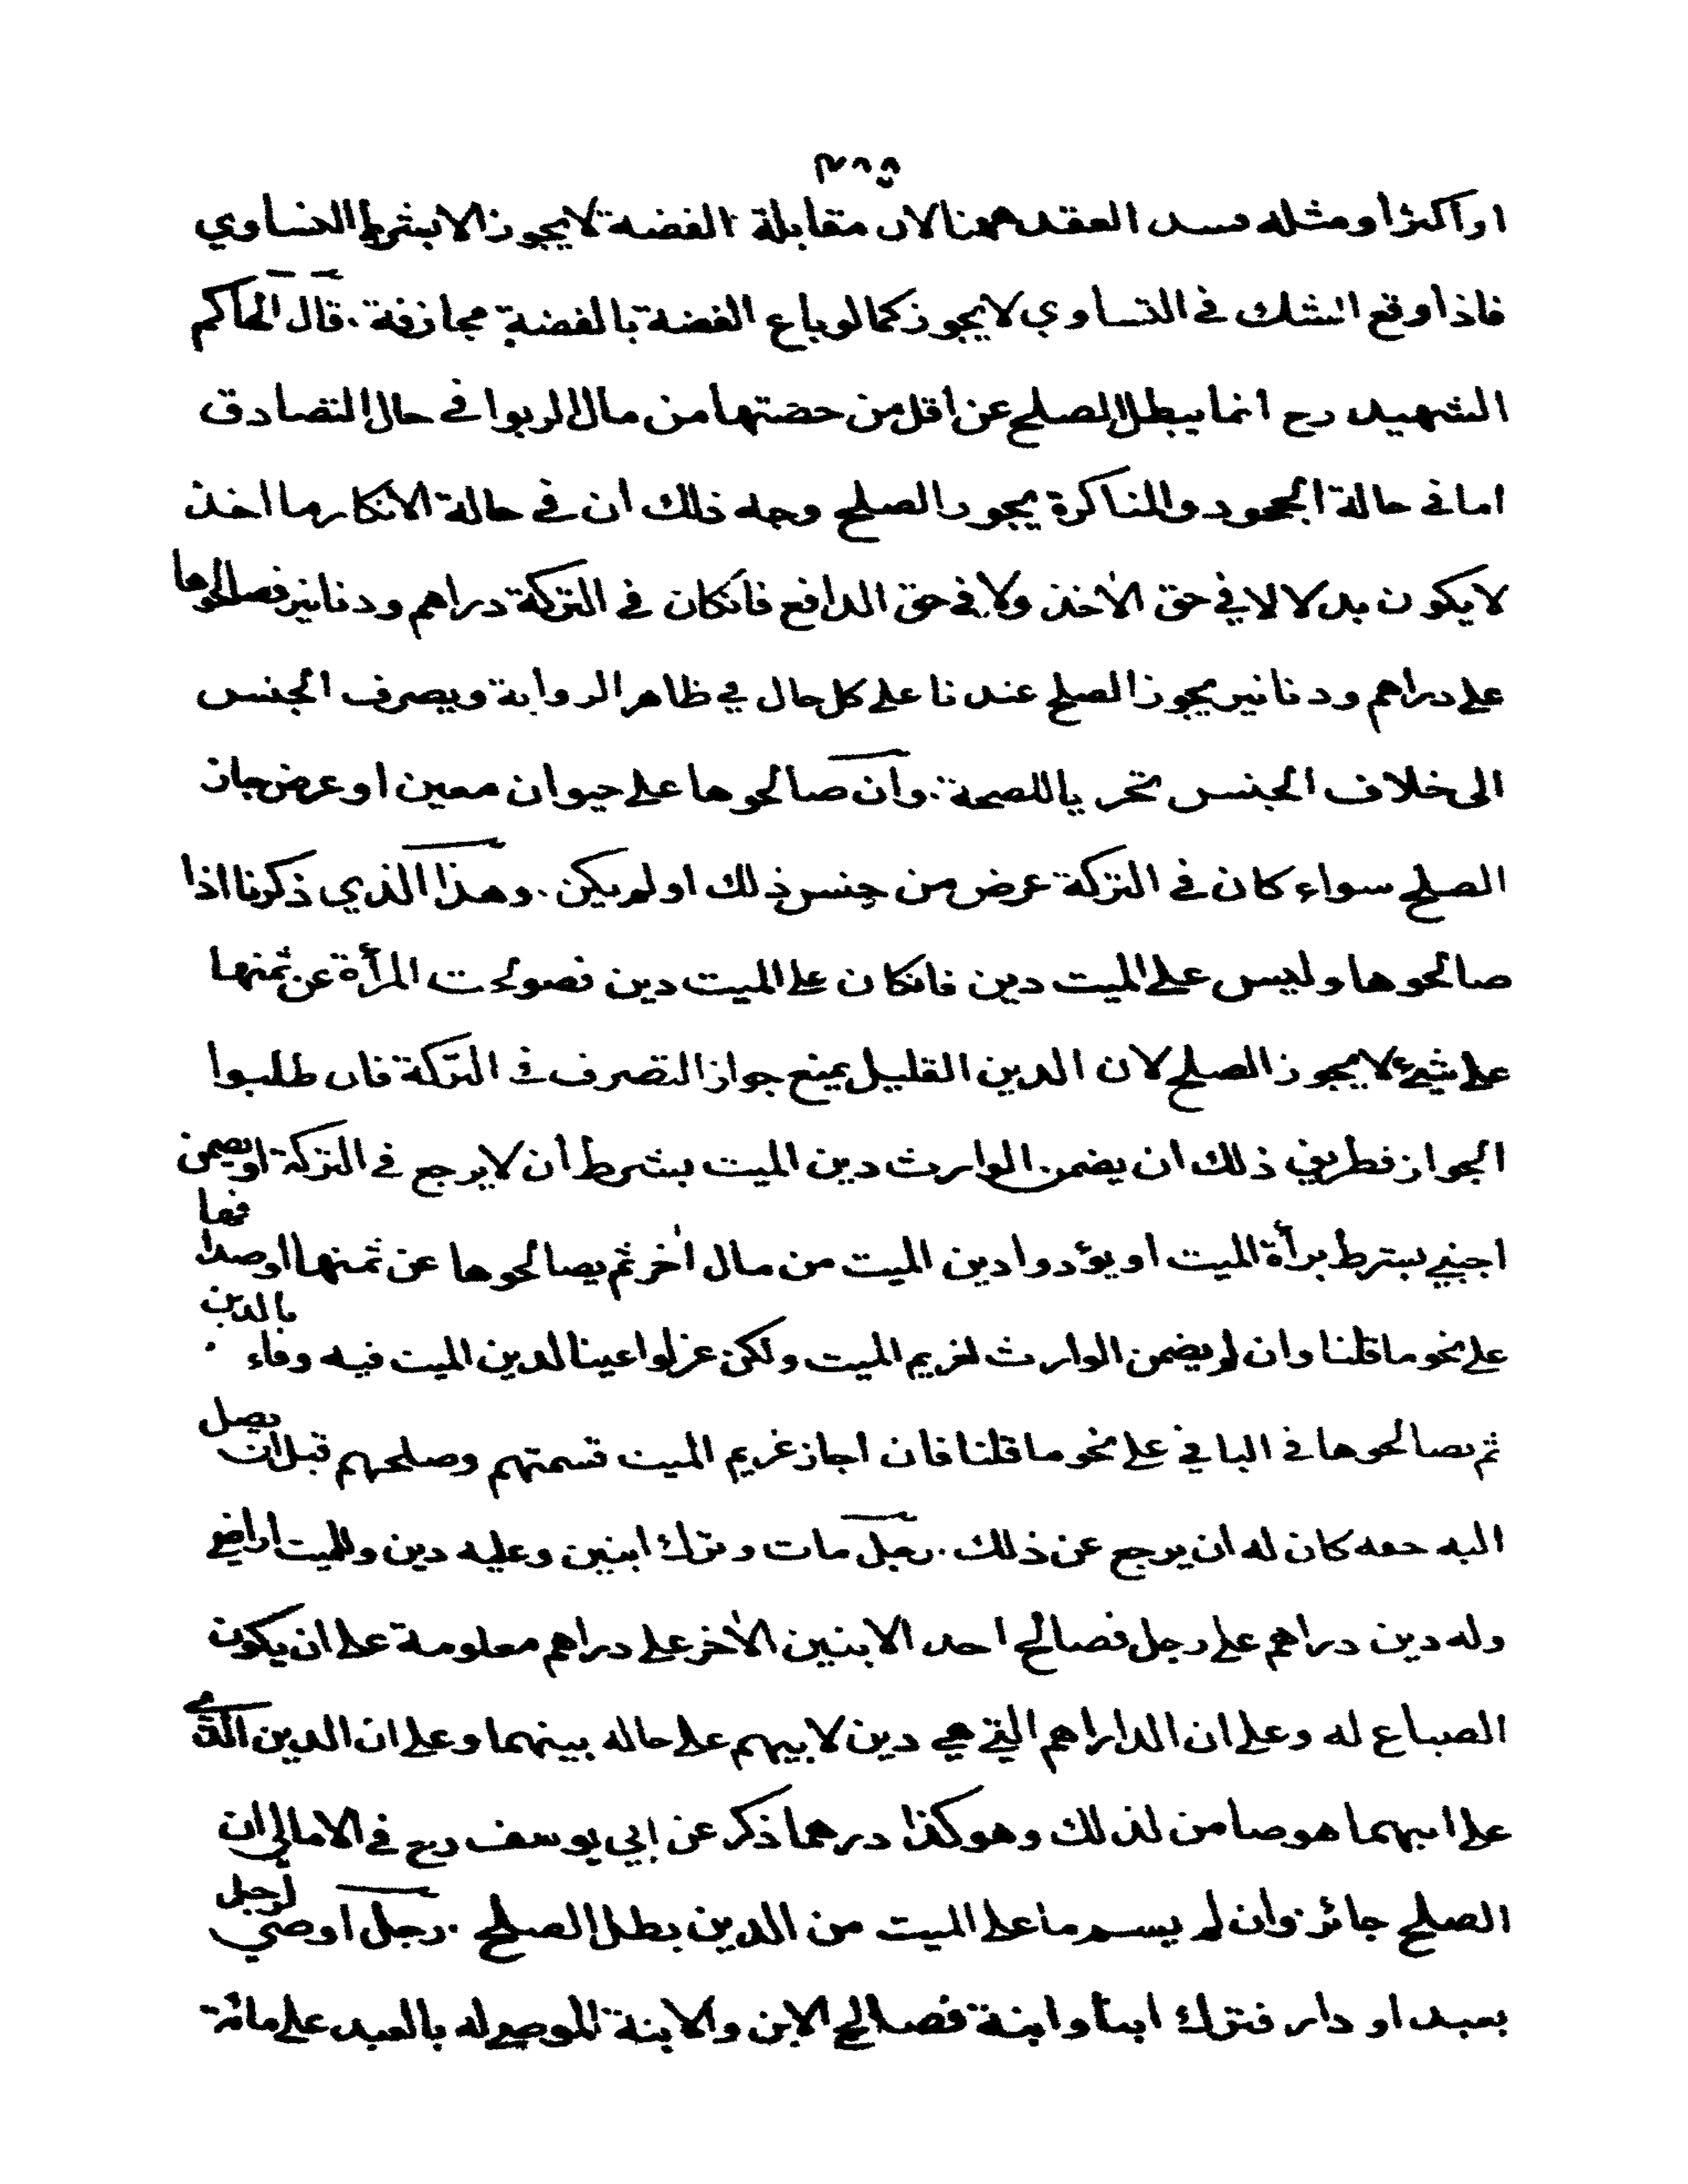 او اكثر او مثله فسد العقد ههنا لان مقابلة الفضة لا يجوز الا بشرط التساوي
فاذا وقع الشك في التساوي لا يجوز كما لو باع الفضة بالفضة مجازفة . قال الحاكم
الشهيد رح انما يبطل الصلح عن اقل من حصتها من مال الربوا في حال التصادق
اما في حالة الجحود والمناكرة يجوز الصلح وجه ذلك ان في حالة الانكار ما اخذ
لا يكون بدلا لا في حق الاخذ ولا في حق الدافع فانكان في التركة دراهم ودنانير فصالحوها
على دراهم ودنانير يجوز الصلح عندنا على كل حال في ظاهر الرواية ويصرف الجنس
الى خلاف الجنس تحريا للصحة . وان صالحوها على حيوان معين او عرض جاز
الصلح سواء كان في التركة عرض من جنس ذلك او لم يكن . وهذا الذي ذكرنا اذا
صالحوها وليس على الميت دين فانكان على الميت دين فصولحت المرأة عن ثمنها
على شيء لا يجوز الصلح لان الدين القليل يمنع جواز التصرف في التركة فان طلبوا
الجواز فطريق ذلك ان يضمن الوارث دين الميت بشرط ان لا يرجع في التركة او يضمن
اجنبي بشرط برأة الميت او يؤدوا دين الميت من مال اخر ثم يصالحوها عن ثمنها او صداقها
على نحو ما قلنا وان لم يضمن الوارث لغريم الميت ولكن عزلوا عينا لدين الميت فيه وفاء بالدين
ثم يصالحوها في الباقي على نحو ما قلنا فان اجاز غريم الميت قسمتهم وصلحهم قبل ان يصل
اليه حقه كان له ان يرجع عن ذلك . رجل مات وترك ابنين وعليه دين وللميت اراضي
وله دين دراهم على رجل فصالح احد الابنين الاخر على دراهم معلومة على ان يكون
الضياع له وعلى ان الداراهم التي هي دين لابيهم على حاله بينهما وعلى ان الدين الذي
على ابيهما هو ضامن لذلك وهو كذا درهما ذكر عن ابي يوسف رح في الامالي ان
الصلح جائز . وان لم يسم ما على الميت من الدين بطل الصلح . رجل اوصى لرجل
بعبد او دار فترك ابنا وابنة فصالح الابن والابنة الموصى له بالعبد على مائة